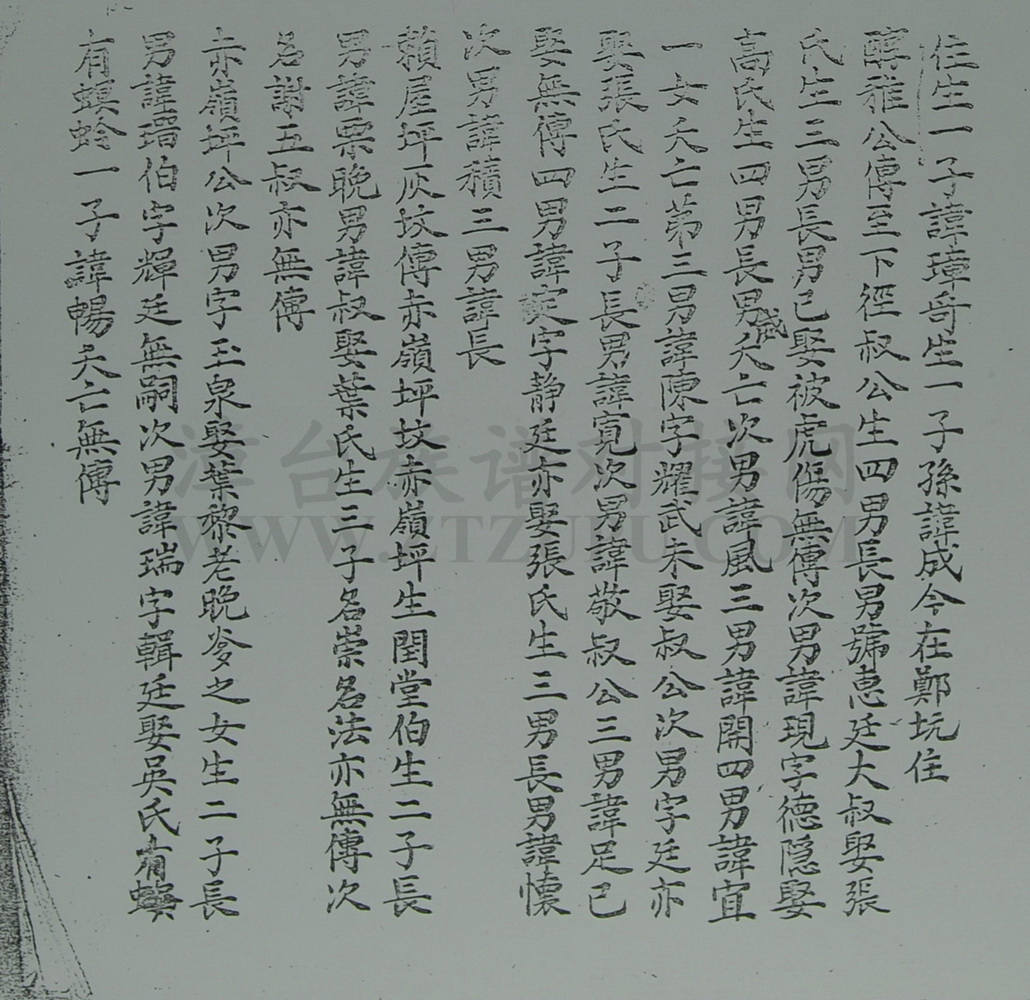 住生一子諱璋奇生一子孫諱成今在鄭坑住
醇雅公傳至下徑叔公生四男長男號惠廷大叔娶張
氏生三男長男已娶被虎傷無傳次男諱現字德隱娶
高氏生四男長男感夭亡次男諱風三男諱開四男諱宜
一女夭亡第三男諱陳字耀武未娶叔公次男字廷亦
娶張氏生二子長男諱寬次男諱敬叔公三男諱足已
娶無傳四男諱定字静廷亦娶張氏生三男長男諱懷
次男諱積三男諱長
賴屋坪灰坟傳赤嶺坪坟赤嶺坪生閏堂伯生二子長
男諱票晚男諱叔娶葉氏生三子名崇名法亦無傳次
名謝五叔亦無傳
赤嶺坪公次男字玉泉娶葉黎老晚爹之女生二子長
男諱瑨伯字輝廷無嗣次男諱瑞字輯廷娶吳氏有螟
有螟蛉一子諱暢夭亡無傳
漳台族谱对接网
WWW.ZTZUPU.COM